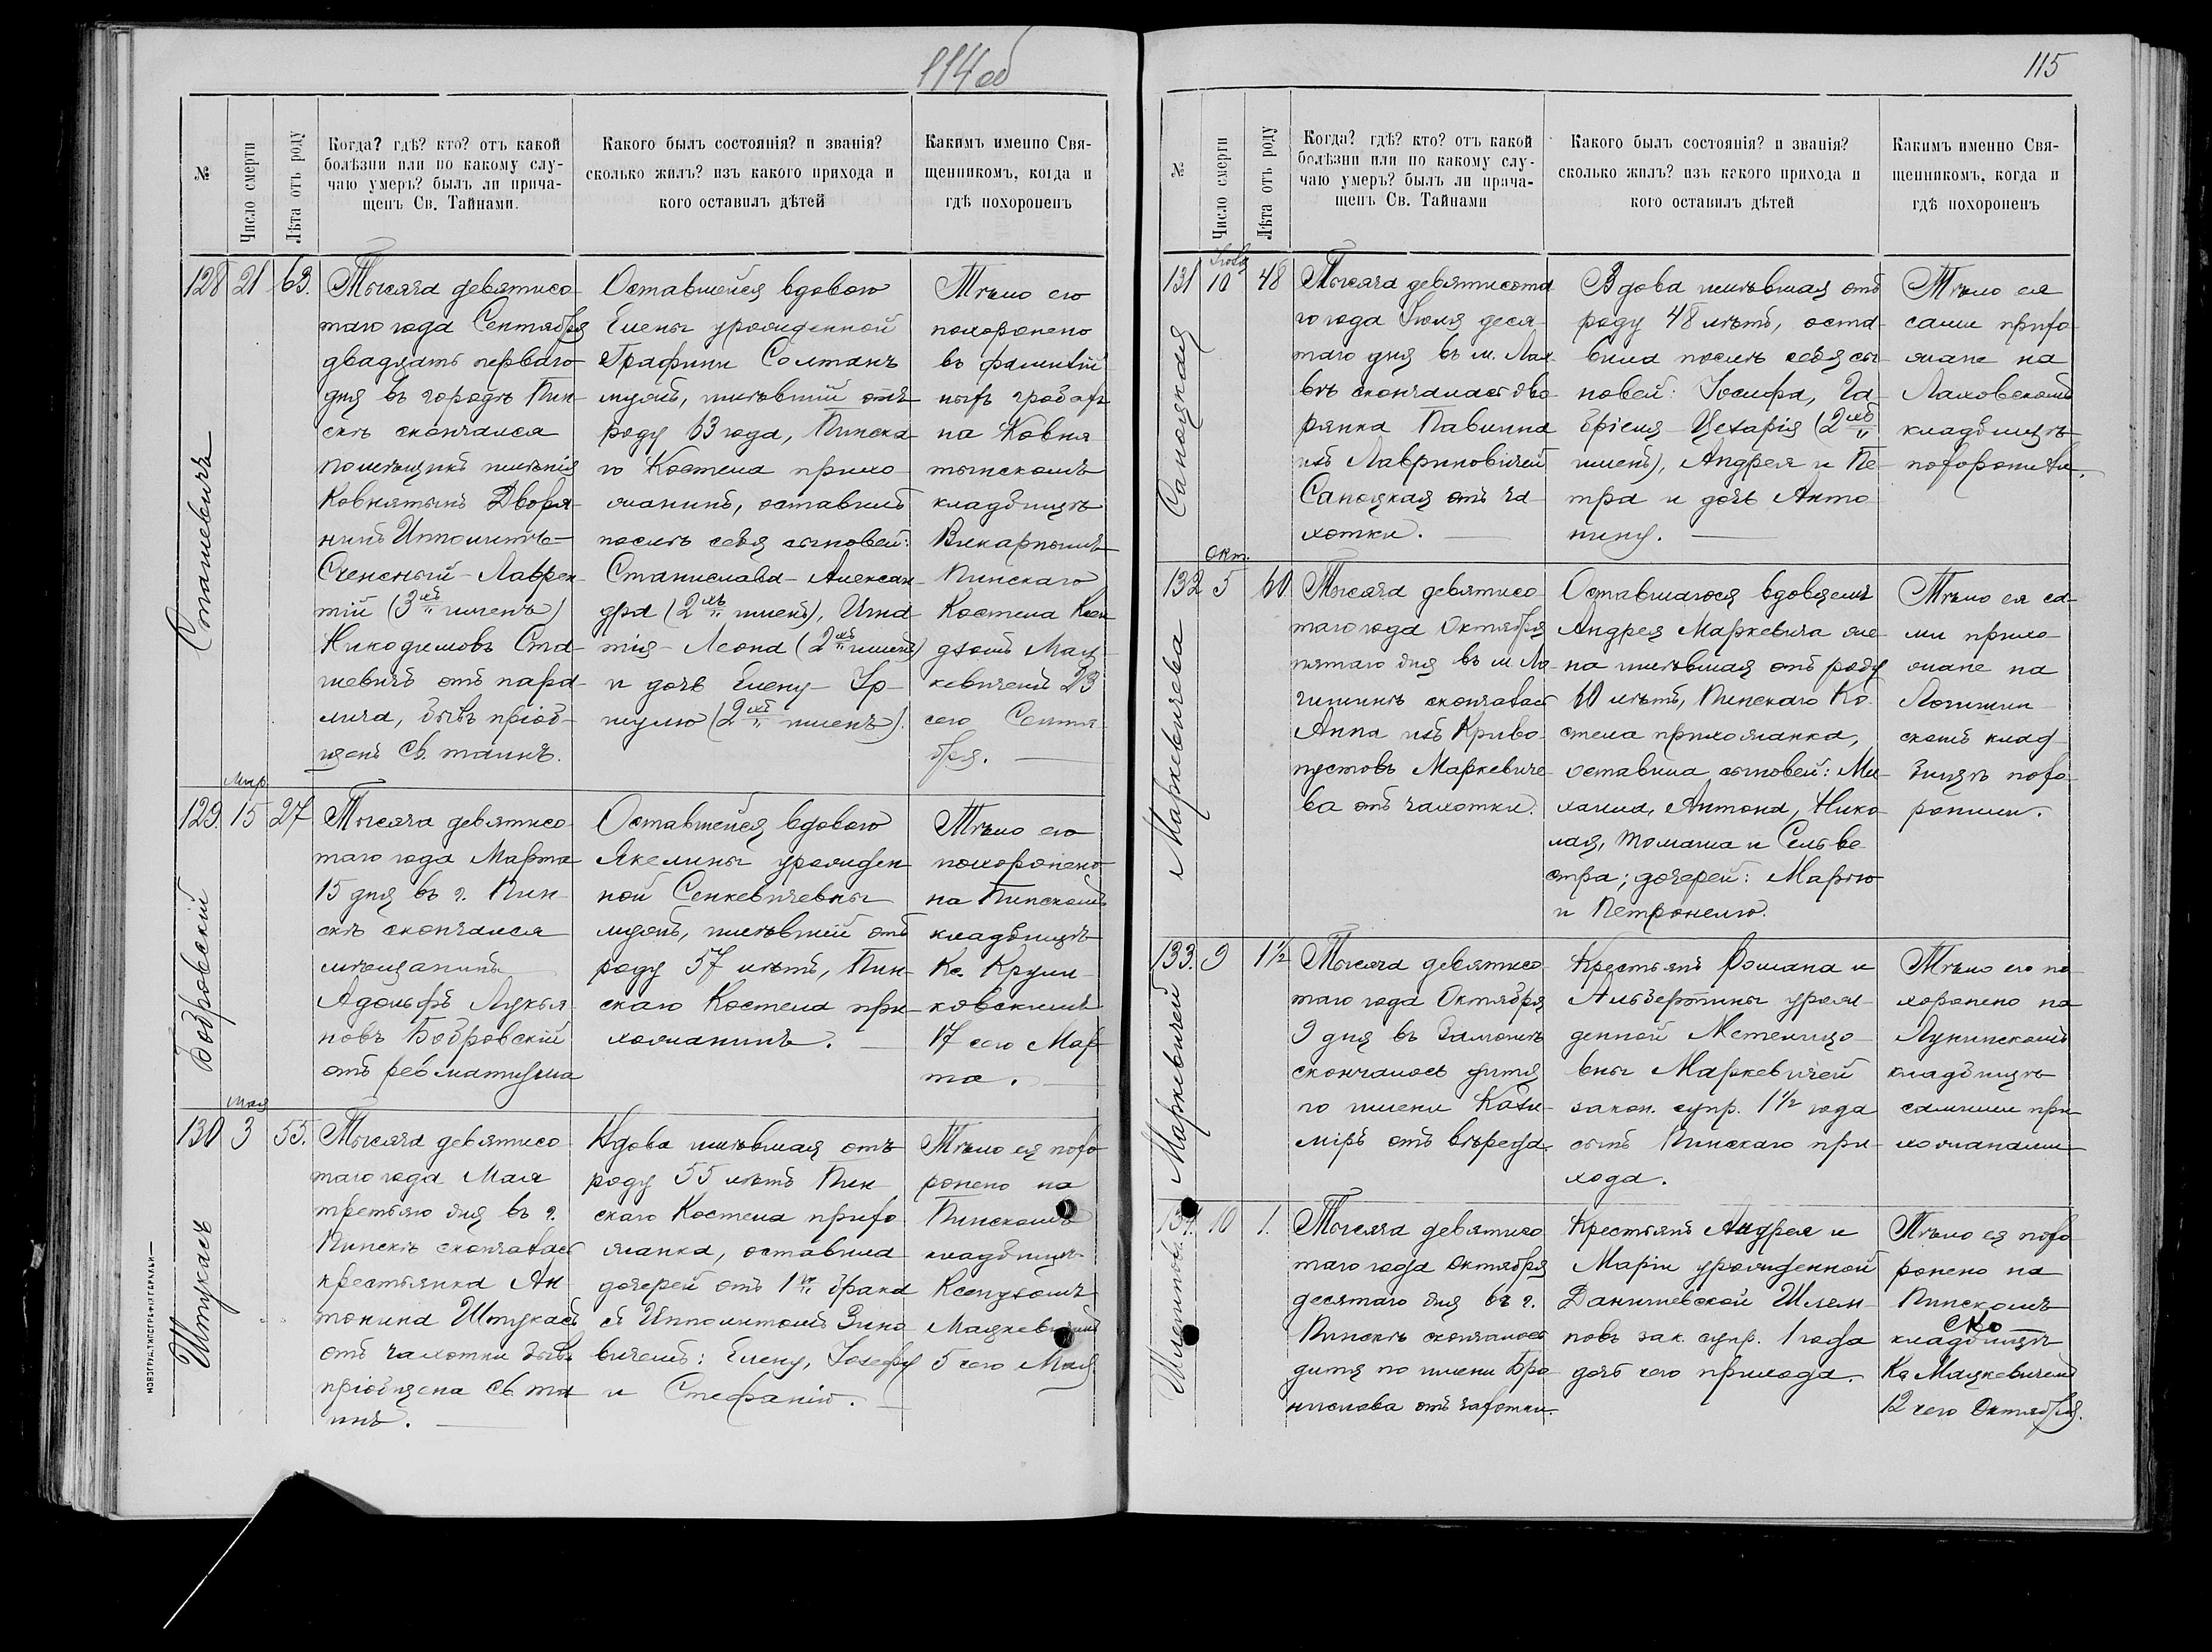 114 об
№
Число смерти
Лѣта отъ роду
Когда? гдѣ? кто? отъ какой
болѣзни или по какому слу-
чаю умеръ? былъ ли прича-
щенъ Св. Тайнами.
Какого былъ состоянія? и званія?
сколько жилъ? изъ какого прихода и
кого оставилъ дѣтей
Какимъ именно Свя-
щенникомъ, когда и
гдѣ похороненъ
128 21 63.
Сташевичъ
Тысяча девятисо-
таго года Сентября
двадцать перваго
дня въ городѣ Пин-
скѣ скончался
помѣщикъ имѣнія
Ковнятынъ Дворя-
нинъ Ипполитъ-
Счесный-Лаврен-
тій (3хъ именъ)
Никодимовъ Ста-
шевичъ отъ пара-
лича, бывъ пріоб-
щенъ Св. таинъ.
Оставшейся вдовою
Елены урожденной
Графини Солтанъ
мужъ, имѣвшій отъ
роду 63 года, Пинска-
го Костела прихо-
жанинъ, оставилъ
послѣ себя сыновей:
Станислава-Алексан-
дра (2хъ именъ), Игна-
тія-Леона (2хъ именъ)
и дочь Елену-Ур-
шулю (2хъ именъ).
Тѣло его
похоронено
въ фамиліи
ныхъ гробахъ
на Ковня-
тынскомъ
кладбищѣ
Викарнымъ
Пинскаго
Костела Ксен
дзомъ Мац-
кевичемъ 23
сего Сентя-
бря.
Мар.
129. 15 27
Бобровскій
Тысяча девятисо-
таго года Марта
15 дня въ г. Пин-
скѣ скончался
мѣщанинъ
Адольфъ Лукья-
новъ Бобровскій
отъ ревматизма
Оставшейся вдовою
Акелины урожден-
ной Сенкевичевны
мужъ, имѣвшій отъ
роду 57 лѣтъ, Пин-
скаго Костела при-
хожанинъ.
Тѣло его
похоронено
на Пинскомъ
кладбищѣ
Кс. Крули-
ковскимъ
17 сего Мар-
та.
Мая
130 3 55.
Штукасъ
Тысяча девятисо-
таго года Мая
третьяго дня въ г.
Пинскѣ скончалась
крестьянка Ан-
тонина Штукасъ
отъ чахотки бывъ
пріобщена Св. та-
инъ.
Вдова имѣвшая отъ
роду 55 лѣтъ Пин-
скаго Костела прихо-
жанка, оставила
дочерей отъ 1го брака
съ Ипполитомъ Зино-
вичемъ: Елену, Іозефу
и Стефанію.
Тѣло ея похо-
ронено на
Пинскомъ
кладбищѣ
Ксендзомъ
Мацкевичемъ
5 сего Мая.
115
№
Число смерти
Лѣта отъ роду
Когда? гдѣ? кто? отъ какой
болѣзни или по какому слу-
чаю умеръ? былъ ли прича-
щенъ Св. Тайнами
Какого былъ состоянія? и званія?
сколько жилъ? изъ какого прихода и
кого оставилъ дѣтей
Какимъ именно Свя-
щенникомъ, когда и
гдѣ похороненъ
Іюля
131 10 48
Саноцкая
Тысяча девятисота-
го года Іюля деся-
таго дня въ м. Лах-
вѣ скончалась дво-
рянка Павлина
изъ Лавриновичей
Саноцкая отъ ча-
хотки.
Вдова имѣвшая отъ
роду 48 лѣтъ, оста-
вила послѣ себя сы-
новей: Іосифа, Га-
бріеля-Цезарія (2хъ
именъ), Андрея и Пе-
тра и дочь Анто-
нину.
Тѣло ея
сами прихо-
жане на
Лаховскомъ
кладбищѣ
похоронили.
Окт.
132 5 60
Маркевичева
Тысяча девятисо-
таго года Октября
пятаго дня въ м. Ло-
гишинѣ скончалась
Анна изъ Криво-
пустовъ Маркевиче-
ва отъ чахотки.
Оставшагося вдовцемъ
Андрея Маркевича же-
на имѣвшая отъ роду
60 лѣтъ, Пинскаго Ко-
стела прихожанка,
оставила сыновей: Ми-
хаила, Антона, Нико-
лая, Томаша и Сильве-
стра; дочерей: Марію
и Петронелю.
Тѣло ея са-
ми прихо-
жане на
Логишин-
скомъ клад-
бищѣ похо-
ронили.
133. 9 1½
Маркевичей
Тысяча девятисо-
таго года Октября
9 дня въ
скончалось дитя
по имени Кази-
міръ отъ вереда.
Крестьянъ Романа и
Альбертины урож-
денной Метелицо-
вны Маркевичей
закон. супр. 1½ года
сынъ Пинскаго при-
хода.
Тѣло его по-
хоронено на
Лунинскомъ
кладбищѣ
самими при-
хожанами
134. 10 1.
Тысяча девятисо-
таго года Октября
десятаго дня въ г.
Пинскѣ скончалось
дитя по имени Бро-
нислава отъ чахотки.
Крестьянъ Андрея и
Маріи урожденной
Данишевской Шлем-
повъ зак. супр. 1 года
дочь сего прихода.
Тѣло ея похо-
ронено на
Пинскомъ
кладбищѣ
Кс Мацкевичемъ
12 сего Октября.